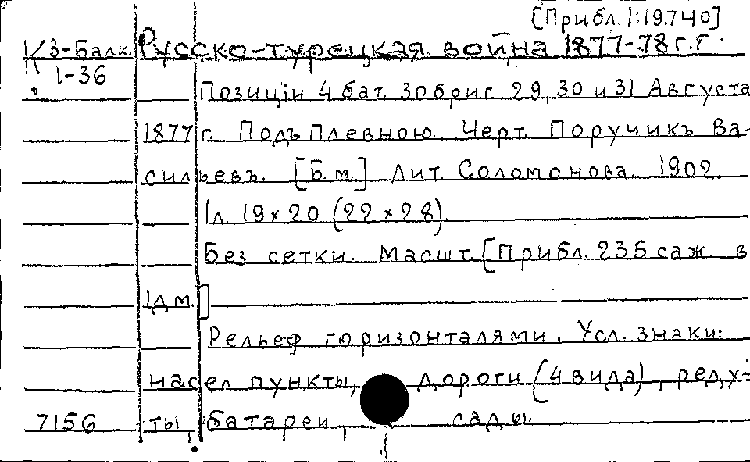 [Прибл. 1:19.740]
К 3-Балк. Русско-турецкая война 1877-78 г.г.
1-36
Позицiи 4 бат. 30 бриг. 29, 30 и 31 Августа
1877 г. Подъ Плевною. Черт. Поручикъ Ва-
сильевъ. [Б.м.] Лит. Соломонова. 1902.
1 л. 19×20 (22×28).
Без сетки. Масшт. [Прибл. 235 саж. в
1 д.м.]
Рельеф горизонталями. Усл. знаки:
насел. пункты, дороги (4 вида), реду-
7156 ты, батареи, сады.